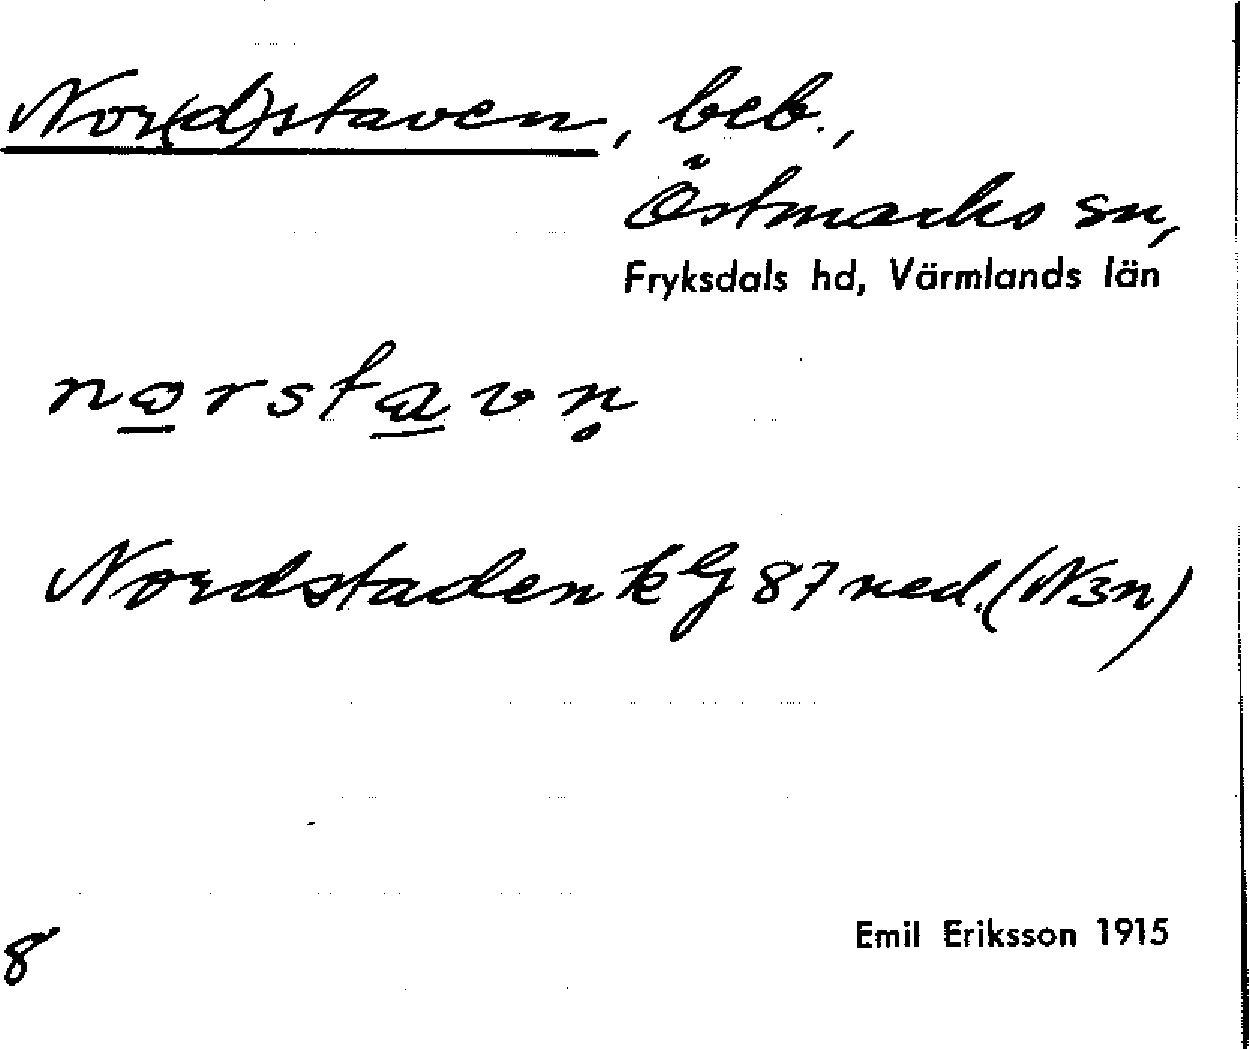 Nor(d)staven, beb.,
Östmarks sn,
Fryksdals hd, Värmlands län
nɷ̲rsta̲vn̥
Nordstaden k G 87 ned. (N3n)
8
Emil Eriksson 1915